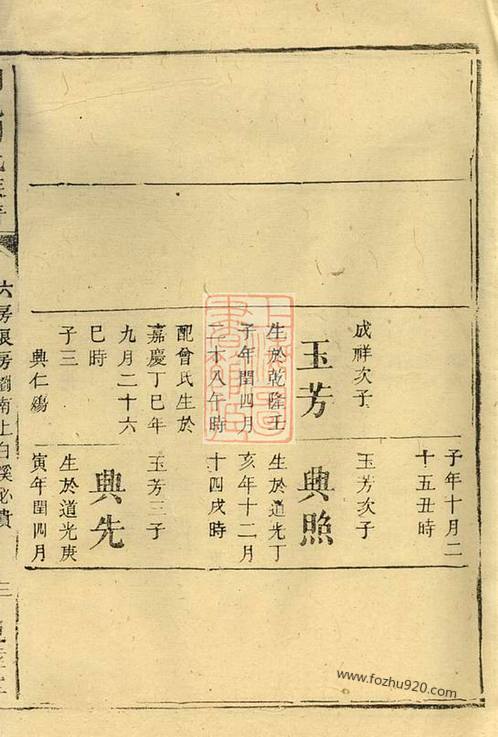 成祥次子
玉芳
生於乾隆壬
子年閏四月
二十八午時
配曾氏生於
嘉慶丁巳年
九月二十六
巳時
子三
典仁鍚
子年十月二
十五丑時
玉芳次子
典照
生於道光丁
亥年十二月
十四戌時
玉芳三子
典先
生於道光庚
寅年閏四月
六房長房
南上白溪必貴
三
www.fozhu920.com